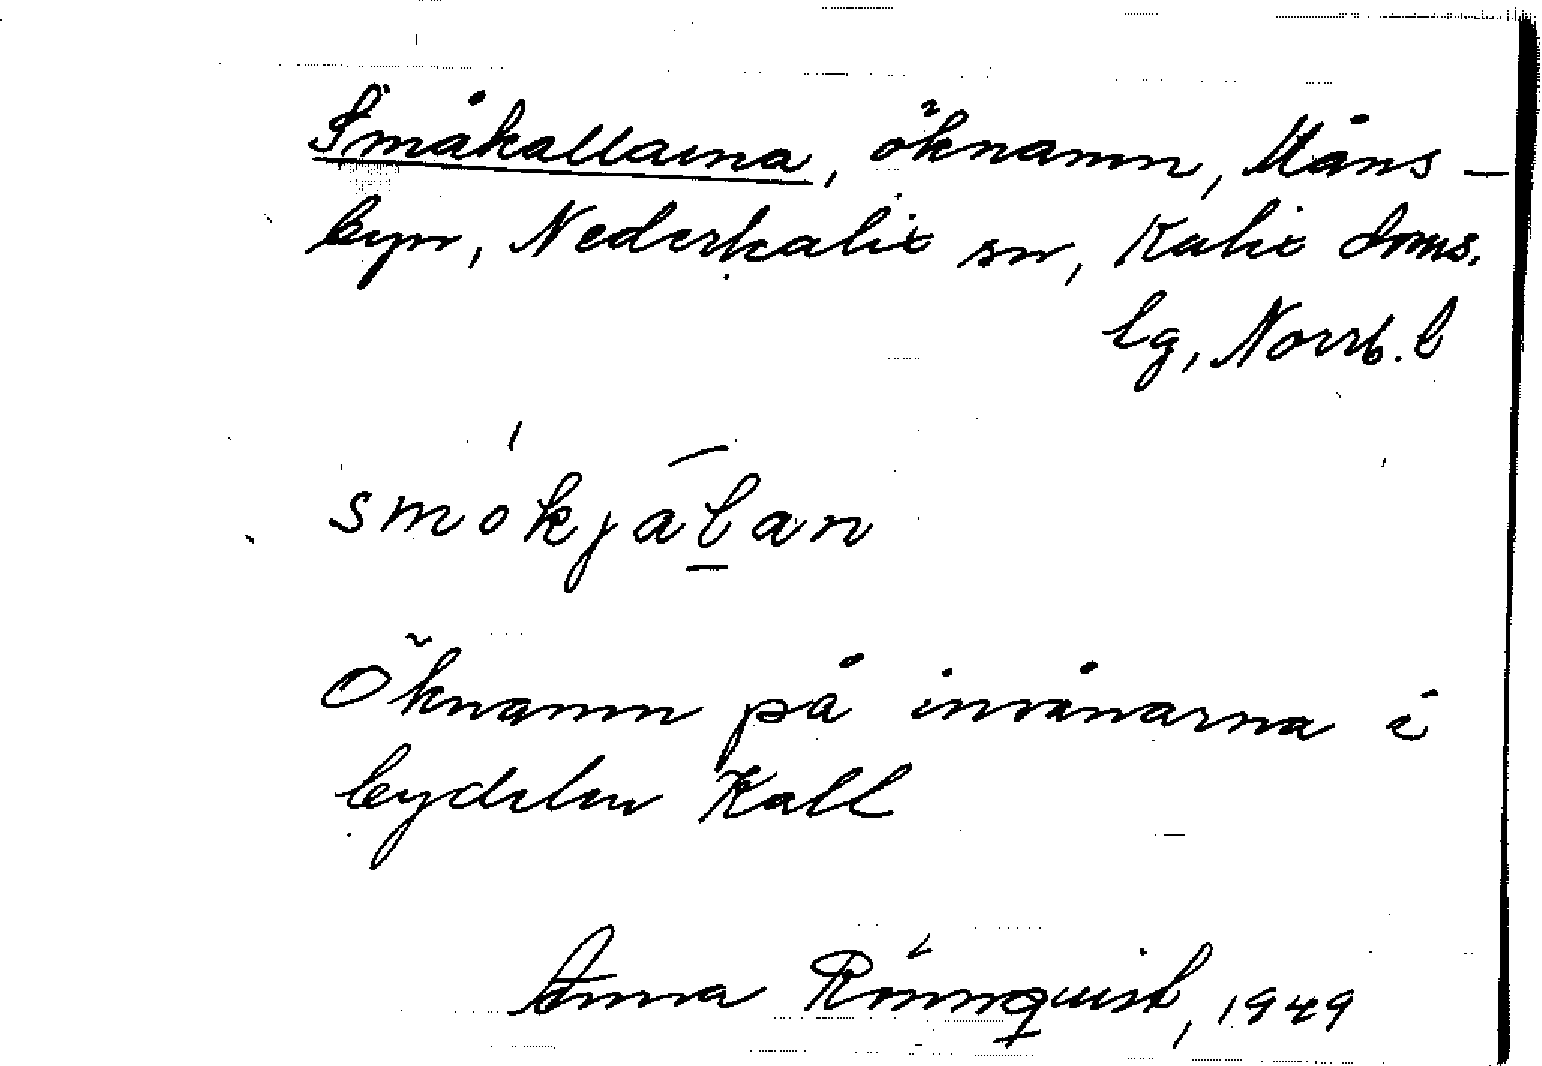 Småkallarna, öknamn, Måns-
byn, Nederkalix sn, Kalix doms.
lg, Norrb. l
smókjálan
Öknamn på invånarna i
bydelen Kall
Anna Rönnquist, 1949